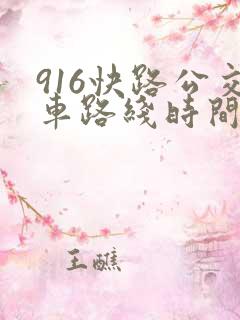 916快路公交
車路綫時間
王醮